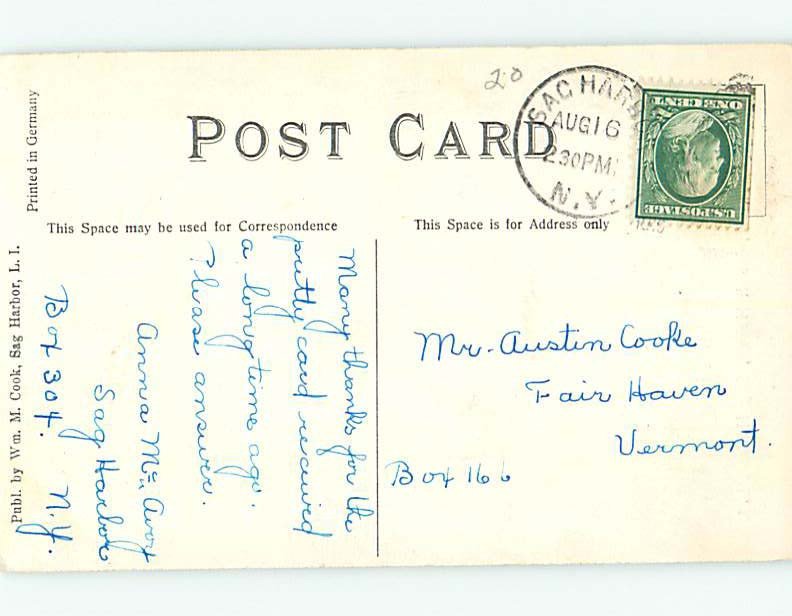 20
SAG HARB
AUG 16
230PM
N.Y.
ONE CENT
U.S. POSTAGE
POST CARD
Printed in Germany
This Space may be used for Correspondence
This Space is for Address only
Publ. by Wm. M. Cook, Sag Harbor, L. I.
Many thanks for the
pretty card received
a long time ago.
Please answer.
Anna Mc
Sag Harbor
Box 304. N.Y.
Mr. Austin Cooke
Fair Haven
Vermont.
Box 166